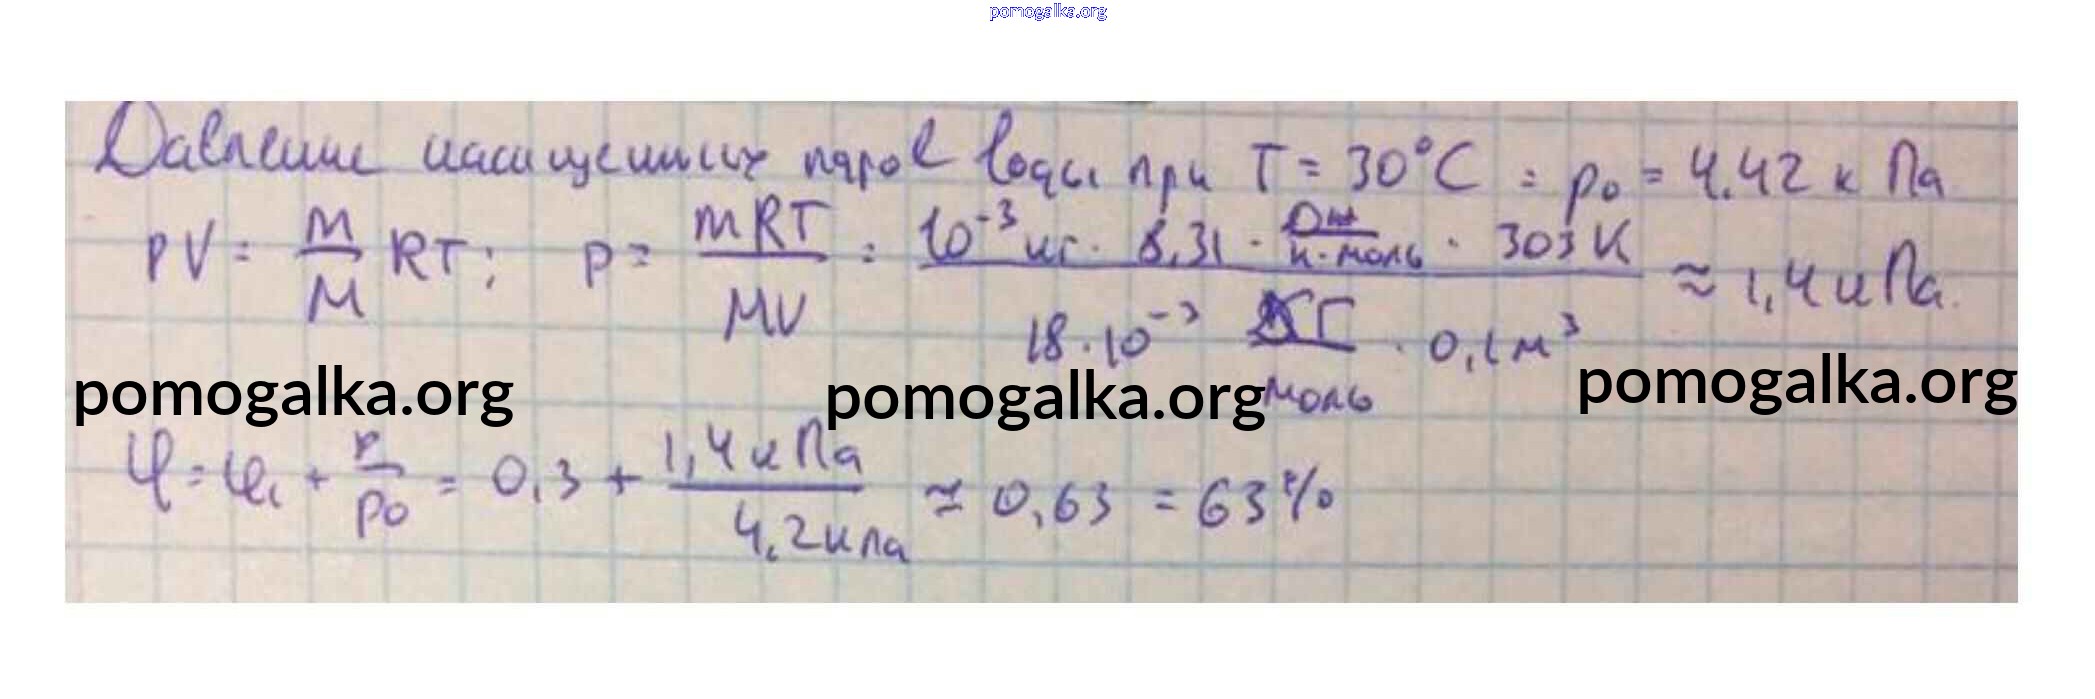 pomogalka.org
Давление насыщенных паров воды при T = 30°C = p₀ = 4.42 кПа
PV = m/M RT; p = mRT/MV = 10⁻³ кг · 8,31 · Дж/К·моль · 303 К / 18 · 10⁻³ кг/моль · 0,1 м³ ≈ 1,4 кПа.
pomogalka.org pomogalka.org pomogalka.org
φ = φ₁ + p/p₀ = 0,3 + 1,4 кПа/4,2 кПа ≈ 0,63 = 63%